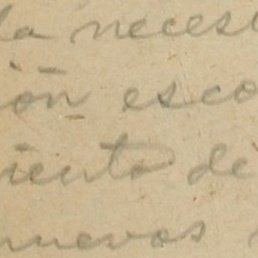 la neces
ión esco
iento de
nuevos